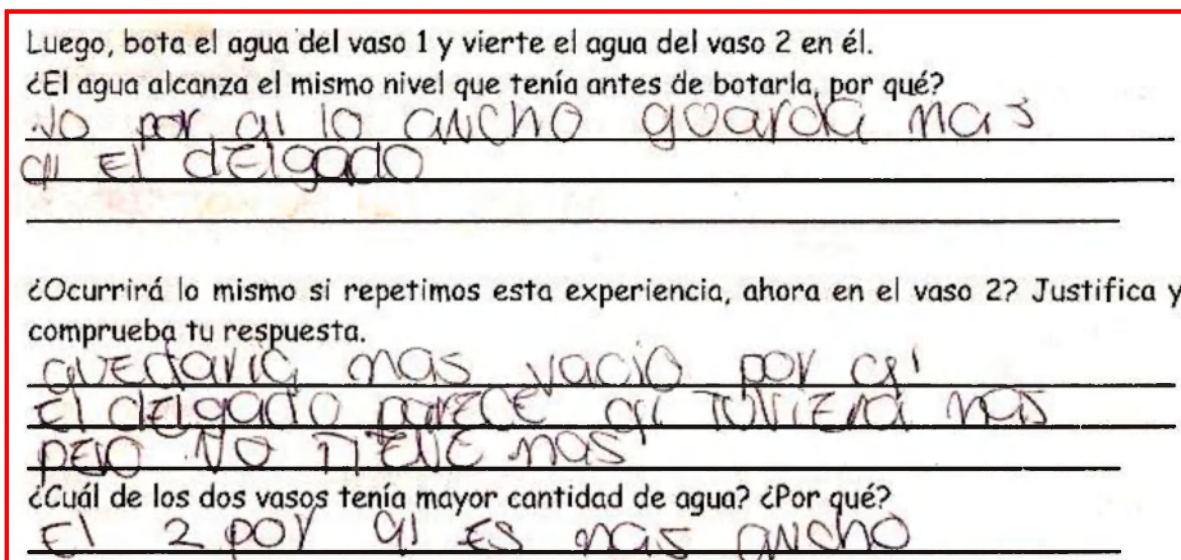 Luego, bota el agua del vaso 1 y vierte el agua del vaso 2 en él.
¿El agua alcanza el mismo nivel que tenía antes de botarla, por qué?
No por qi lo ancho guarda mas
qi El dElgado
¿Ocurrirá lo mismo si repetimos esta experiencia, ahora en el vaso 2? Justifica y
comprueba tu respuesta.
quEdaria mas vacio por qi
El dElgado parECE qi TUViEra mas
pero NO TIENE mas
¿Cuál de los dos vasos tenía mayor cantidad de agua? ¿Por qué?
El 2 por qi ES mas ancho